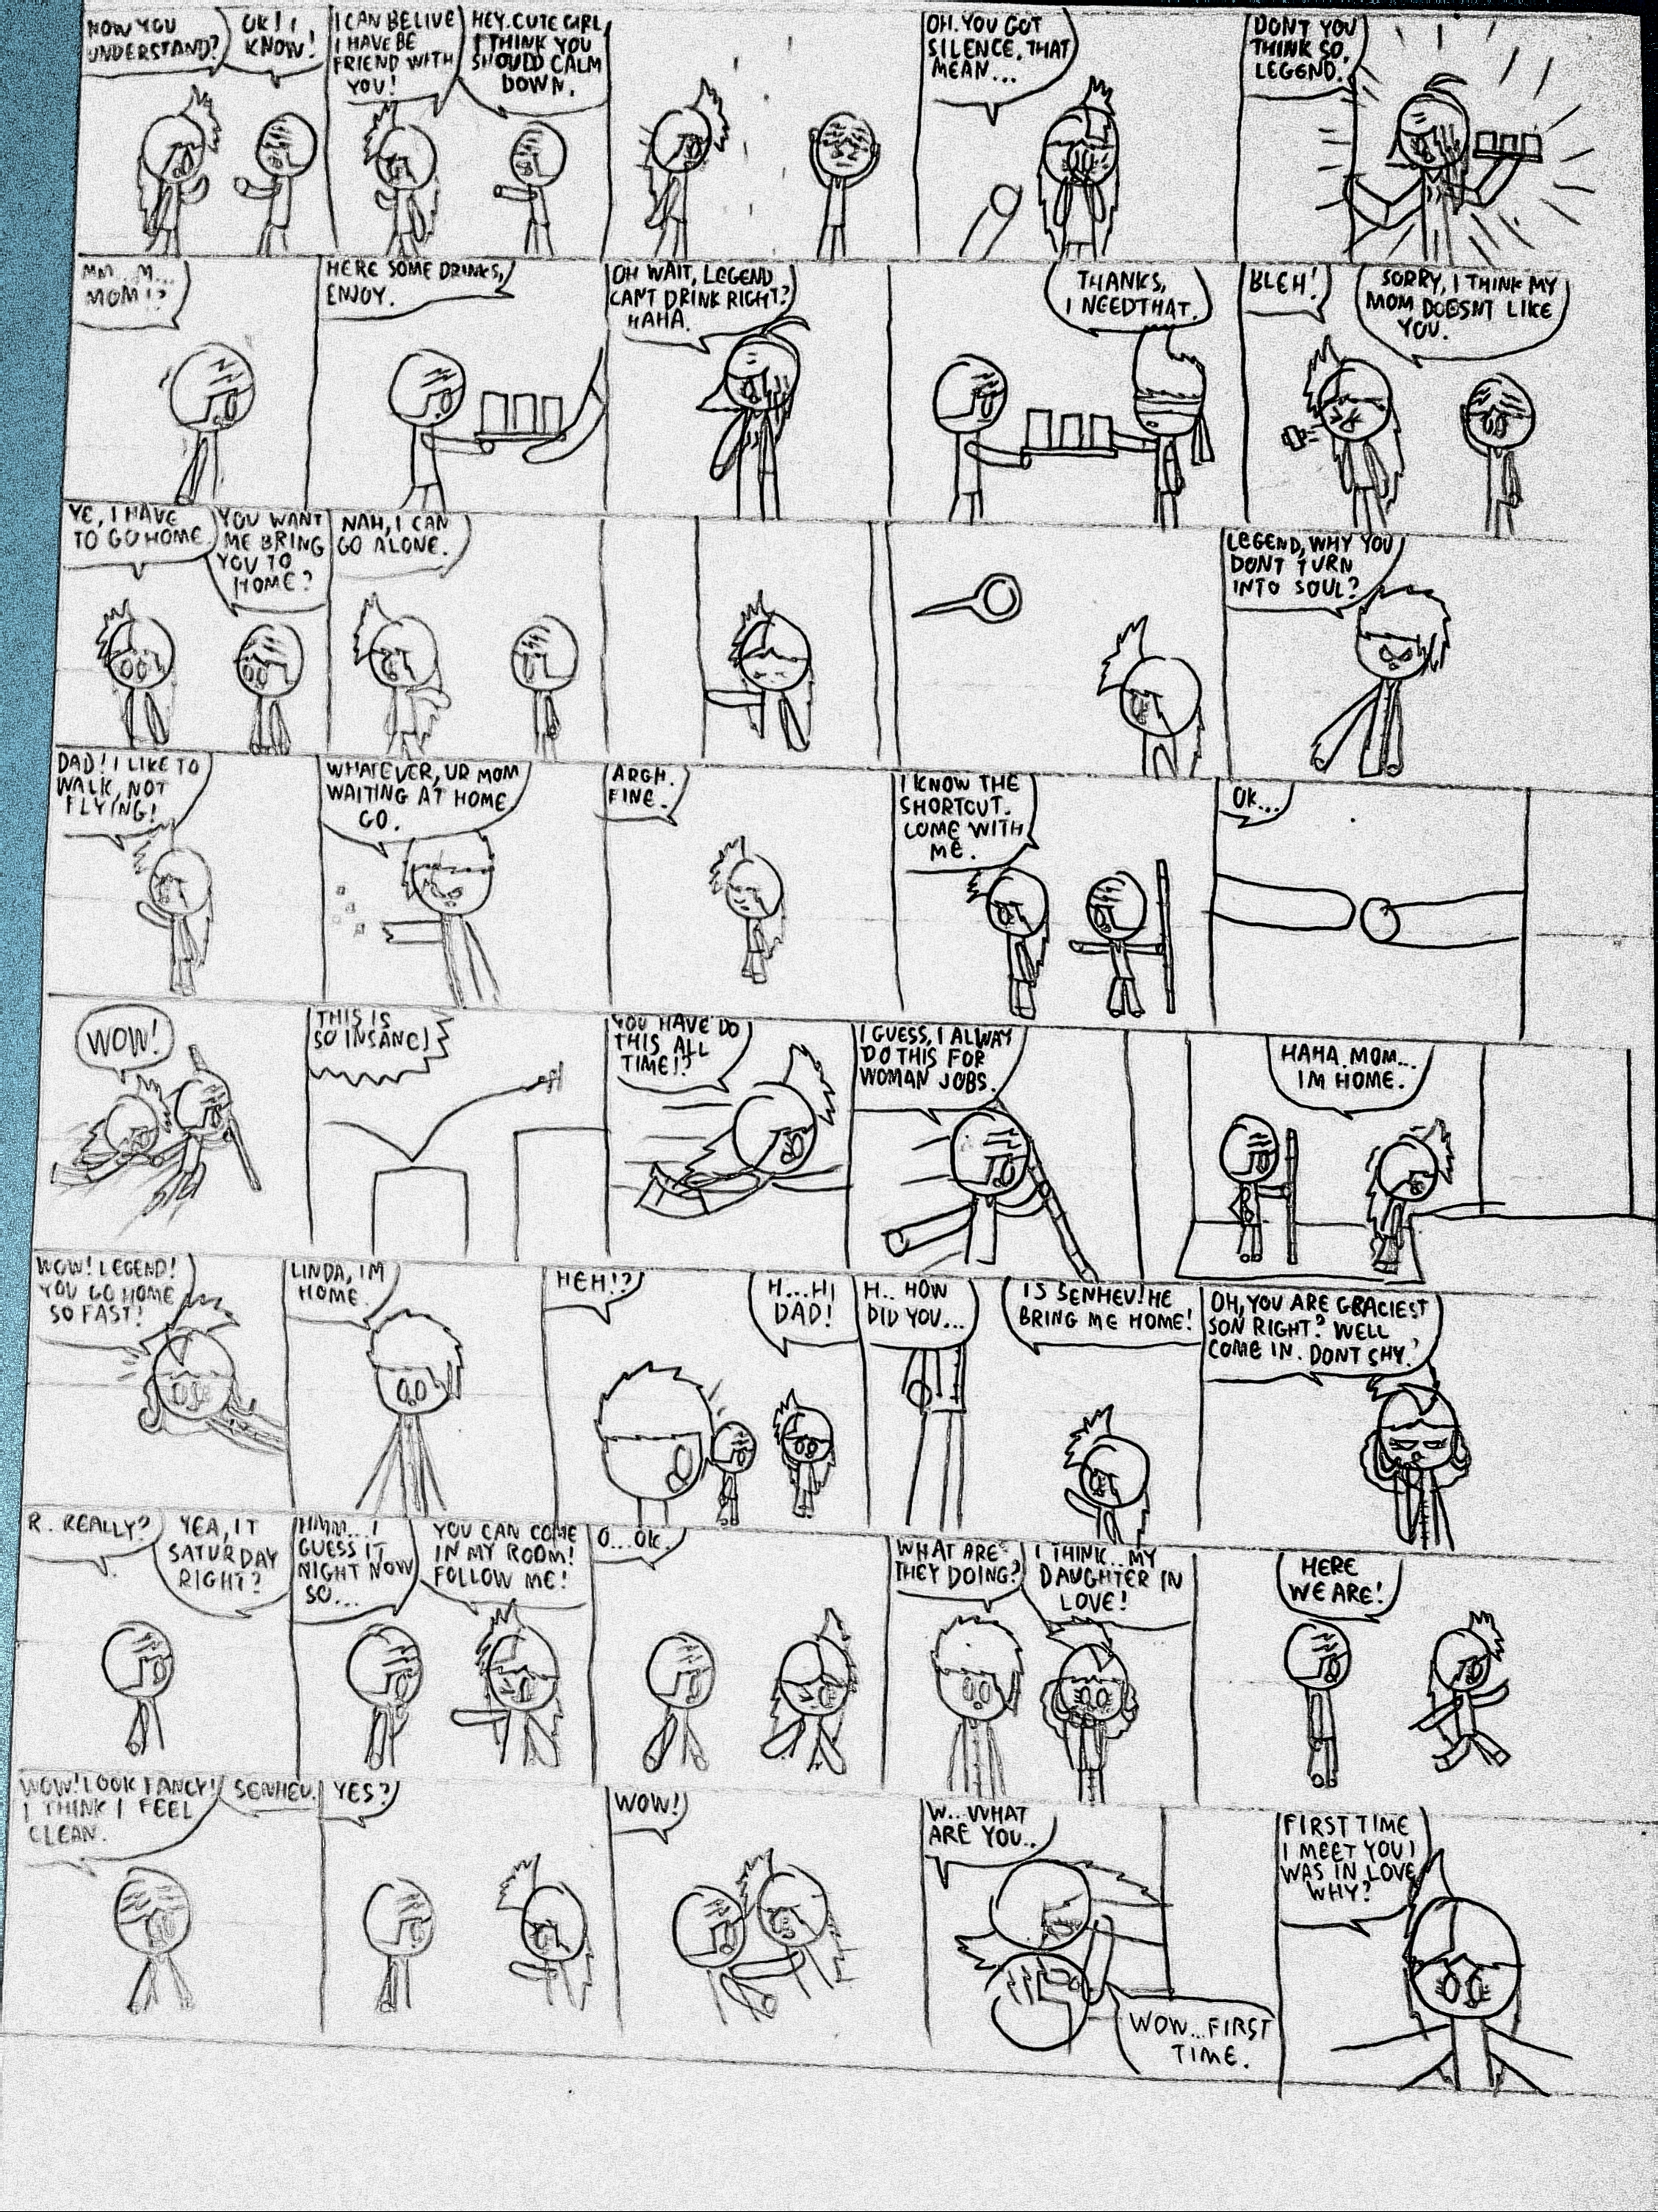 NOW YOU
UNDERSTAND?
OK! I
KNOW!
I CAN BELIVE
I HAVE BE
FRIEND WITH
YOU!
HEY. CUTE GIRL,
I THINK YOU
SHOULD CALM
DOWN.
OH. YOU GOT
SILENCE. THAT
MEAN...
DONT YOU
THINK SO.
LEGEND.
MM...M...
MOM!?
HERE SOME DRINKS,
ENJOY.
OH WAIT, LEGEND
CAN'T DRINK RIGHT?
HAHA.
THANKS,
I NEED THAT.
BLEH!
SORRY, I THINK MY
MOM DOESNT LIKE
YOU.
YE, I HAVE
TO GO HOME.
YOU WANT
ME BRING
YOU TO
HOME?
NAH, I CAN
GO ALONE.
LEGEND, WHY YOU
DONT TURN
INTO SOUL?
DAD! I LIKE TO
WALK, NOT
FLYING!
WHATEVER, UR MOM
WAITING AT HOME
GO.
ARGH.
FINE.
I KNOW THE
SHORTCUT.
COME WITH
ME.
OK...
WOW!
THIS IS
SO INSANE!
YOU HAVE DO
THIS ALL
TIME!?
I GUESS, I ALWAY
DO THIS FOR
WOMAN JOBS.
HAHA. MOM...
IM HOME.
WOW! LEGEND!
YOU GO HOME
SO FAST!
LINDA, IM
HOME.
HEH!?
H...HI
DAD!
H.. HOW
DID YOU...
IS SENHEV! HE
BRING ME HOME!
OH, YOU ARE GRACIEST
SON RIGHT? WELL
COME IN. DONT SHY.
R. REALLY?
YEA, IT
SATURDAY
RIGHT?
HMM... I
GUESS IT
NIGHT NOW
SO...
YOU CAN COME
IN MY ROOM!
FOLLOW ME!
O...OK.
WHAT ARE
THEY DOING?
I THINK.. MY
DAUGHTER IN
LOVE!
HERE
WE ARE!
WOW! LOOK FANCY!
I THINK I FEEL
CLEAN.
SENHEV.
YES?
WOW!
W.. WHAT
ARE YOU..
WOW...FIRST
TIME.
FIRST TIME
I MEET YOU I
WAS IN LOVE
WHY?